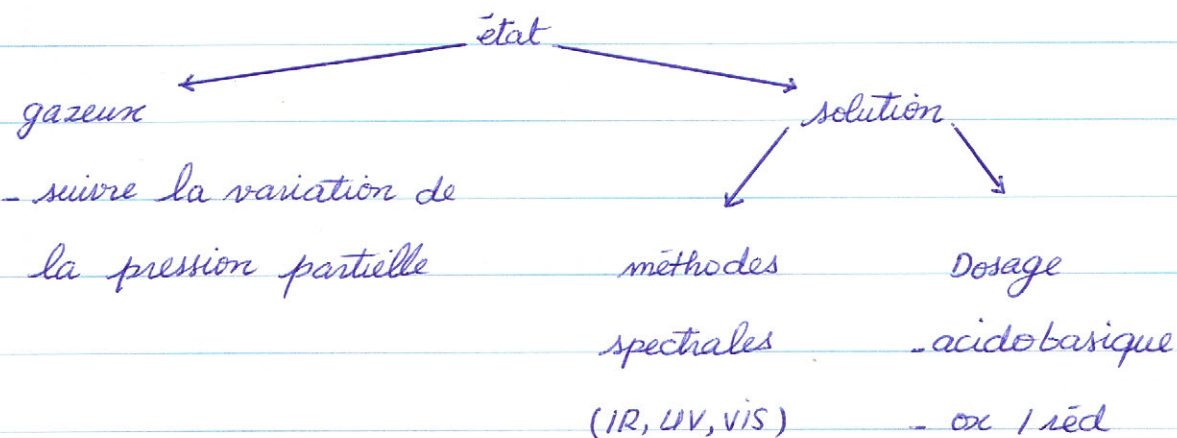 état
gazeux
solution
- suivre la variation de
la pression partielle
méthodes
spectrales
(IR, UV, VIS)
Dosage
- acidobasique
- ox / réd